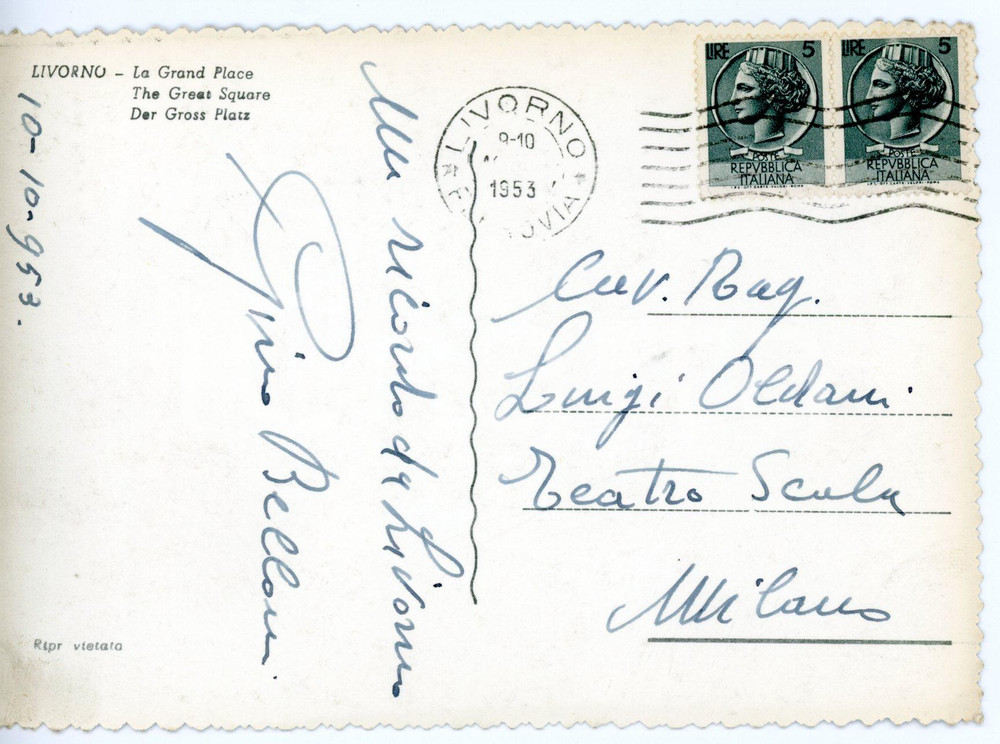 LIVORNO – La Grand Place
The Great Square
Der Gross Platz
10-10-953.
Un ricordo da Livorno
Gino Belloni
Ripr vietata
LIVORNO
9-10
1953
LIRE 5
POSTE
REPVBBLICA
ITALIANA
LIRE 5
POSTE
REPVBBLICA
ITALIANA
Cav. Rag.
Luigi Oldani
Teatro Scala
Milano